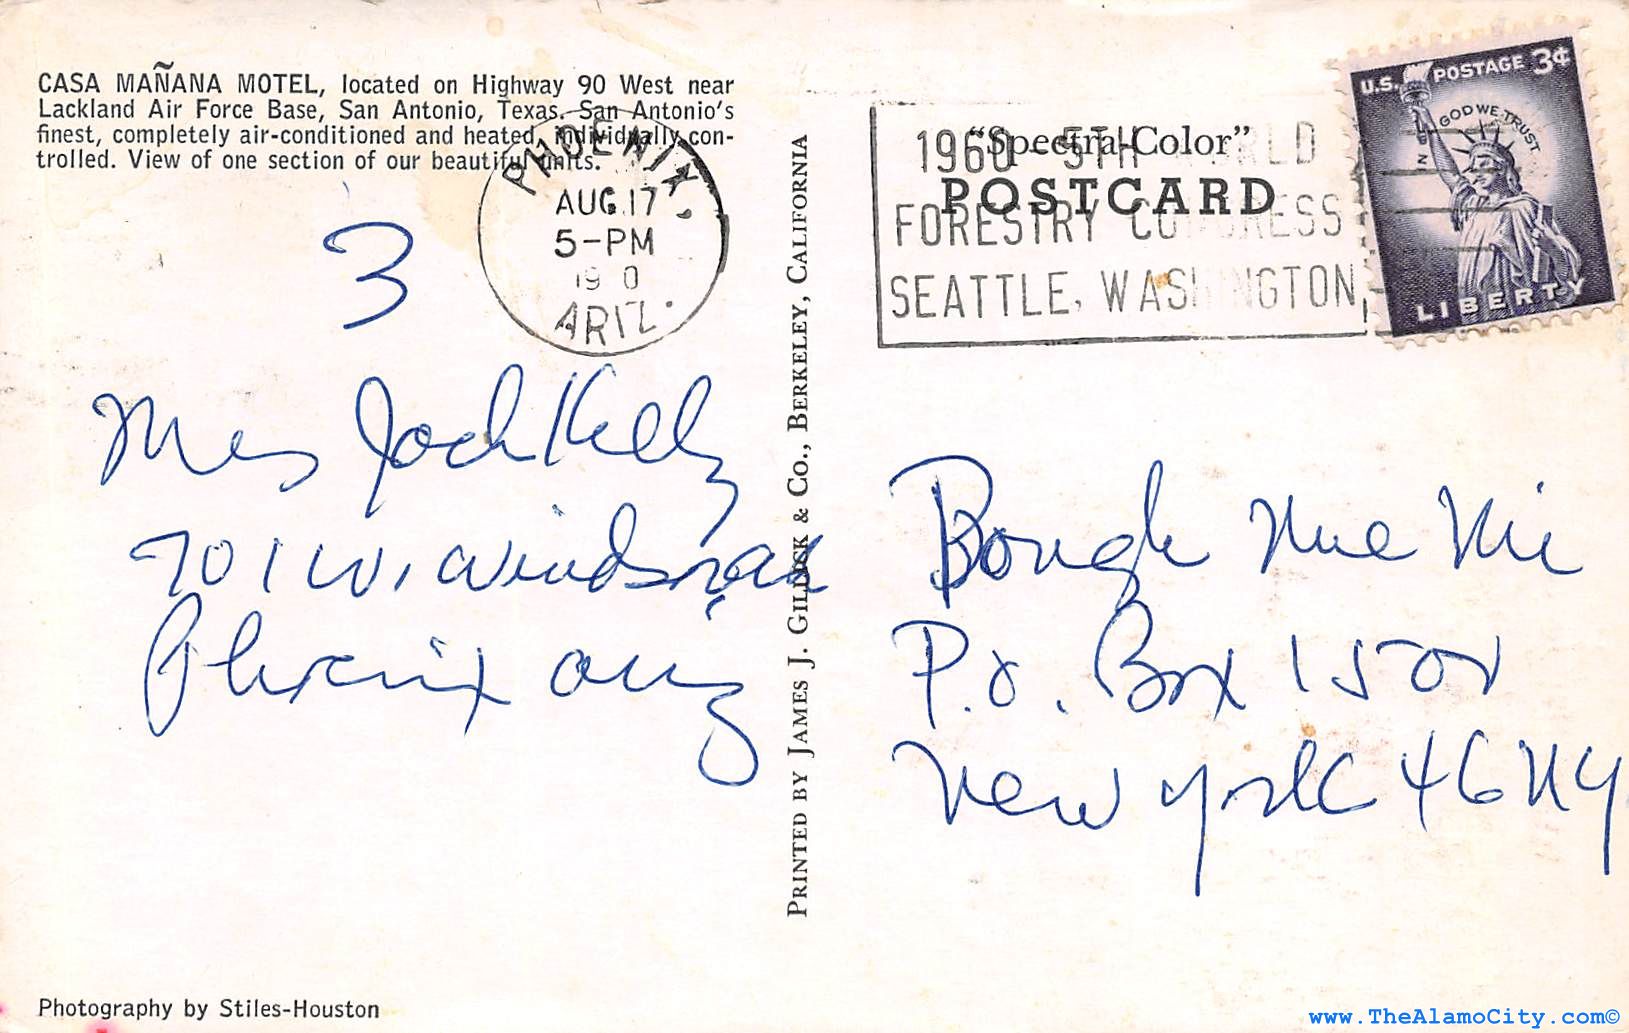 CASA MAÑANA MOTEL, located on Highway 90 West near
Lackland Air Force Base, San Antonio, Texas. San Antonio's
finest, completely air-conditioned and heated, individually con-
trolled. View of one section of our beautiful units.
PHOENIX,
AUG 17
5-PM
19 0
ARIZ.
3
Mrs Jack Kelly
701 W. Windsor
Phoenix Ariz
Photography by Stiles-Houston
PRINTED BY JAMES J. GILLICK & CO., BERKELEY, CALIFORNIA
"Spectra-Color"
POSTCARD
1960-5TH WORLD
FORESTRY CONGRESS
SEATTLE, WASHINGTON,
U.S. POSTAGE 3¢
IN GOD WE TRUST
LIBERTY
Bough Me
P.O. Box 1501
New York 46 NY
www.TheAlamoCity.com©